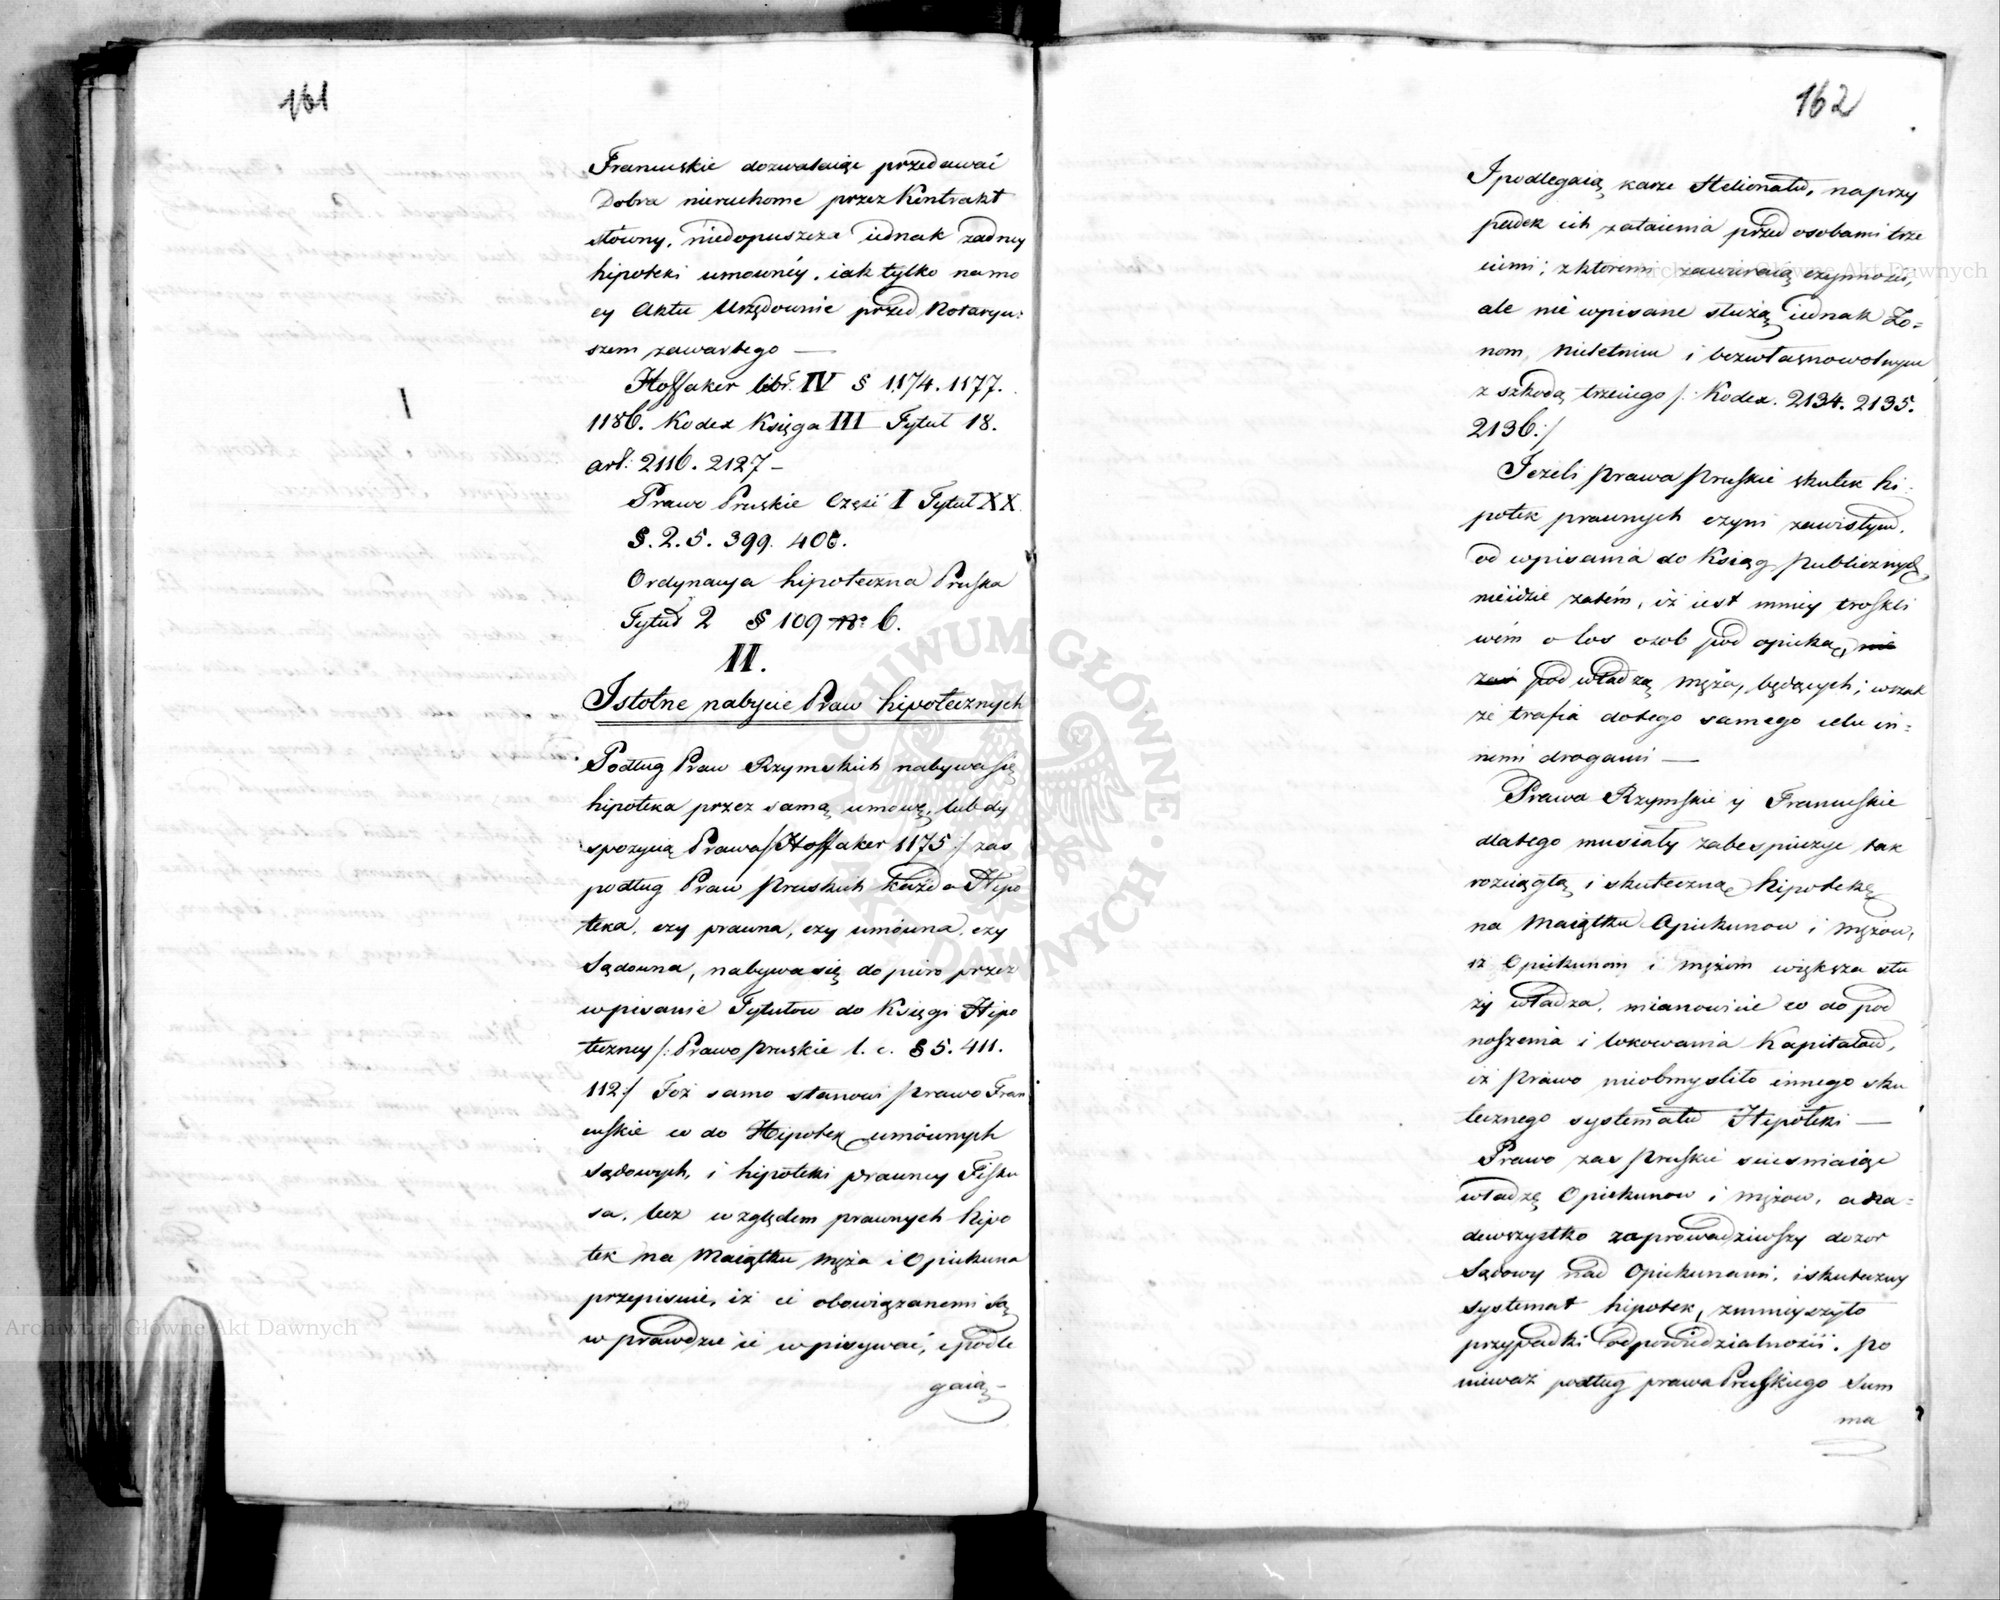 161
Francuskie dozwalaiąc przedawać
Dobra nieruchome przez Kontrakt
słowny, niedopuszcza iednak żadney
hipoteki umownéy, iak tylko na mo
cy Aktu Urzędownie przed Notaryu:
szem zawartego —
Hoffaker libr. IV § 1174. 1177.
1186. Kodex Księga III Tytuł 18.
art: 2116. 2127 —
Prawo Pruskie Część I Tytuł XX.
§. 2. 5. 399.
Ordynacya hipoteczna Pruska
Tytuł 2 § 109 6.
II.
Istotne nabycie Praw hipotecznych
Podług Praw Rzymskich nabywa się
hipoteka przez samą umowę, lub dy
spozycią Prawa /: Hoffaker 1175 :/ zas
podług Praw Pruskich każda Hipo
teka, czy prawna, czy umówna, czy
Sądowna, nabywa się do piéro przez
wpisanie Tytułow do Księgi Hipo
teczney /: Prawo Pruskie l. c. § 5. 411.
112 :/ Toż samo stanowi Prawo Fran
cuskie co do Hipotek umównych
sądowych, i hipoteki prawney Fisku
sa, lecz względem prawnych hipo
tek na Maiątku Męża i Opiekuna
przepisuie, iż ci obowiązanemi są
w prawdzie ie wpisywać, i podle
gaią —
162
I podlegaią karze Stelionatu, na przy
padek ich zataienia przed osobami trze
ciemi; z ktoremi zawieraią czynności,
ale nie wpisane służą iednak Żo=
nom, Nieletnim i bezwłasnowolnym
z szkodą trzeciego /: Kodex. 2134. 2135.
2136 :/
Jeżeli Prawa Pruskie skutek hi
potek prawnych czyni zawisłym,
od wpisania do Ksiąg Publicznych,
nie idzie zatém, iż iest mniey troskli
wém o los osob pod opieką, nie
zaś pod władzą męża, będących; wszak
że trafia do tego samego celu in=
nemi drogami —
Prawa Rzymskie y Francuskie
dla tego musiały zabespieczyć tak
rozciągłą i skuteczną hipotekę
na Maiątku Opiekunow i mężow,
iż Opiekunom i mężom większa słu
ży władza, mianowicie co do pod
noszenia i lokowania Kapitałow,
iż Prawo nieobmyśliło innego sku
tecznego systematu Hipoteki —
Prawo zas Pruskie scieśniaiąc
władzę Opiekunow i mężow, a na=
dewszystko zaprowadziwszy dozor
Sądowy nad Opiekunami, i skuteczny
systemat hipotek, zmnieyszyło
przypadki odpowiedzialności, po
nieważ podług prawa Pruskiego Sum
ma
Archiwum Główne Akt Dawnych
Archiwum Główne Akt Dawnych
ARCHIWUM GŁÓWNE AKT DAWNYCH